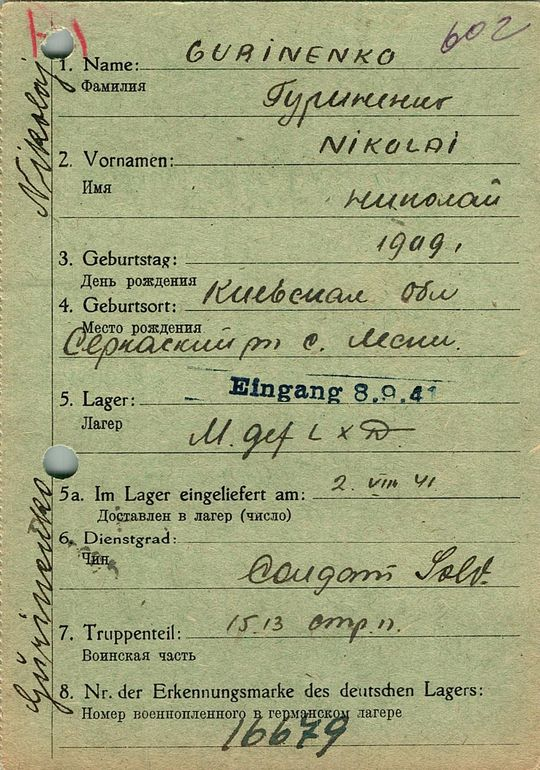 602
1. Name: GURINENKO
Фамилия
Гуриненко
2. Vornamen: NIKOLAI
Имя
Николай
3. Geburtstag: 1909,
День рождения
4. Geburtsort: Киевская обл
Место рождения
с.
5. Lager: Eingang 8.9.41
Лагер
5a. Im Lager eingeliefert am: 2. VIII 41
Доставлен в лагер (число)
6. Dienstgrad:
Чин
Солдат Sold.
7. Truppenteil: 1513 стр. п.
Воинская часть
8. Nr. der Erkennungsmarke des deutschen Lagers:
Номер военнопленного в германском лагере
16679
Gurinenko
Nikolaj